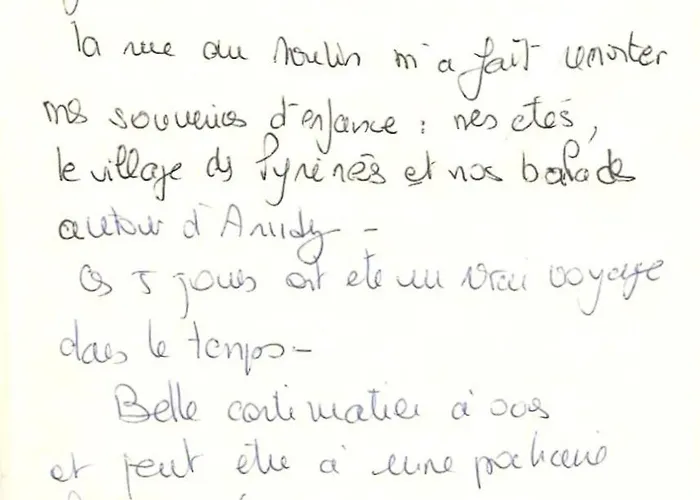 la rue du Moulin m'a fait remonter
mes souvenirs d'enfance : mes étés,
le village des Pyrénées et nos balades
autour d'Arudy -
Ces 5 jours ont été un vrai voyage
dans le temps -
Belle continuation à vous
et peut être à une prochaine